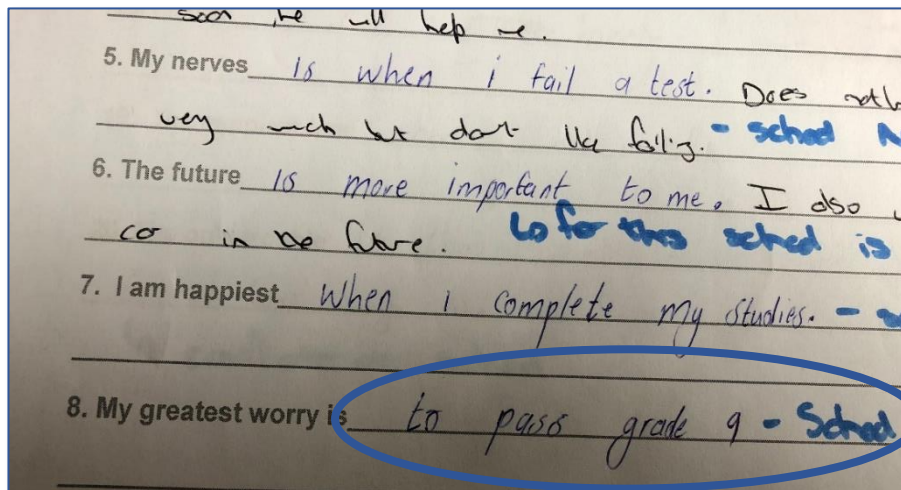 soon he will help me.
5. My nerves is when i fail a test. Does
very much but dont like failing. - sched
6. The future is more important to me. I also
in the future. for this sched is
7. I am happiest when i complete my studies. -
8. My greatest worry is to pass grade 9 - Sched